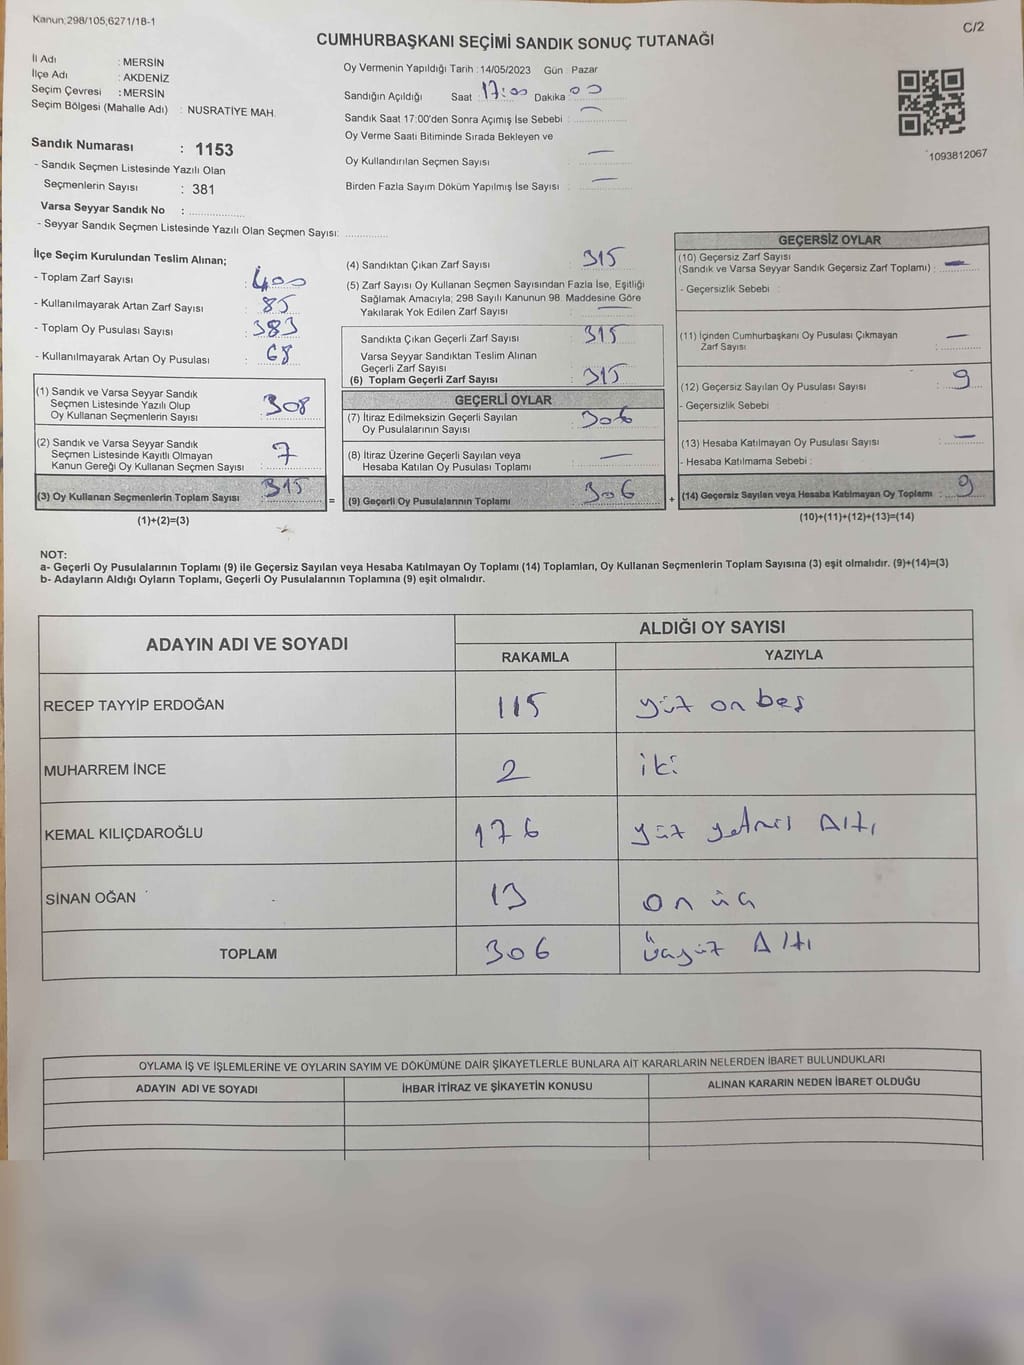 Kanun;298/105,6271/18-1
C/2
CUMHURBAŞKANI SEÇİMİ SANDIK SONUÇ TUTANAĞI
İl Adı : MERSİN
İlçe Adı : AKDENİZ
Seçim Çevresi : MERSİN
Seçim Bölgesi (Mahalle Adı) : NUSRATİYE MAH.
Sandık Numarası : 1153
- Sandık Seçmen Listesinde Yazılı Olan
Seçmenlerin Sayısı : 381
Varsa Seyyar Sandık No :
- Seyyar Sandık Seçmen Listesinde Yazılı Olan Seçmen Sayısı:
Oy Vermenin Yapıldığı Tarih : 14/05/2023 Gün : Pazar
Sandığın Açıldığı Saat 17:00 Dakika 00
Sandık Saat 17:00'den Sonra Açımış İse Sebebi : —
Oy Verme Saati Bitiminde Sırada Bekleyen ve
Oy Kullandırılan Seçmen Sayısı : —
Birden Fazla Sayım Döküm Yapılmış İse Sayısı : —
1093812067
İlçe Seçim Kurulundan Teslim Alınan;
- Toplam Zarf Sayısı : 400
- Kullanılmayarak Artan Zarf Sayısı : 85
- Toplam Oy Pusulası Sayısı : 383
- Kullanılmayarak Artan Oy Pusulası : 68
(1) Sandık ve Varsa Seyyar Sandık
Seçmen Listesinde Yazılı Olup
Oy Kullanan Seçmenlerin Sayısı : 308
(2) Sandık ve Varsa Seyyar Sandık
Seçmen Listesinde Kayıtlı Olmayan
Kanun Gereği Oy Kullanan Seçmen Sayısı : 7
(3) Oy Kullanan Seçmenlerin Toplam Sayısı : 315 =
(1)+(2)=(3)
(4) Sandıktan Çıkan Zarf Sayısı : 315
(5) Zarf Sayısı Oy Kullanan Seçmen Sayısından Fazla İse, Eşitliği
Sağlamak Amacıyla; 298 Sayılı Kanunun 98. Maddesine Göre
Yakılarak Yok Edilen Zarf Sayısı : —
Sandıkta Çıkan Geçerli Zarf Sayısı : 315
Varsa Seyyar Sandıktan Teslim Alınan
Geçerli Zarf Sayısı :
(6) Toplam Geçerli Zarf Sayısı : 315
GEÇERLİ OYLAR
(7) İtiraz Edilmeksizin Geçerli Sayılan
Oy Pusulalarının Sayısı : 306
(8) İtiraz Üzerine Geçerli Sayılan veya
Hesaba Katılan Oy Pusulası Toplamı : —
(9) Geçerli Oy Pusulalarının Toplamı : 306 +
GEÇERSİZ OYLAR
(10) Geçersiz Zarf Sayısı
(Sandık ve Varsa Seyyar Sandık Geçersiz Zarf Toplamı) : —
- Geçersizlik Sebebi :
(11) İçinden Cumhurbaşkanı Oy Pusulası Çıkmayan
Zarf Sayısı : —
(12) Geçersiz Sayılan Oy Pusulası Sayısı : 9
- Geçersizlik Sebebi :
(13) Hesaba Katılmayan Oy Pusulası Sayısı : —
- Hesaba Katılmama Sebebi :
(14) Geçersiz Sayılan veya Hesaba Katılmayan Oy Toplamı : 9
(10)+(11)+(12)+(13)=(14)
NOT:
a- Geçerli Oy Pusulalarının Toplamı (9) ile Geçersiz Sayılan veya Hesaba Katılmayan Oy Toplamı (14) Toplamları, Oy Kullanan Seçmenlerin Toplam Sayısına (3) eşit olmalıdır. (9)+(14)=(3)
b- Adayların Aldığı Oyların Toplamı, Geçerli Oy Pusulalarının Toplamına (9) eşit olmalıdır.
ADAYIN ADI VE SOYADI
ALDIĞI OY SAYISI
RAKAMLA YAZIYLA
RECEP TAYYİP ERDOĞAN 115 yüz on beş
MUHARREM İNCE 2 iki
KEMAL KILIÇDAROĞLU 176 yüz yetmiş Altı
SİNAN OĞAN 13 on üç
TOPLAM 306 üçyüz Altı
OYLAMA İŞ VE İŞLEMLERİNE VE OYLARIN SAYIM VE DÖKÜMÜNE DAİR ŞİKAYETLERLE BUNLARA AİT KARARLARIN NELERDEN İBARET BULUNDUKLARI
ADAYIN ADI VE SOYADI İHBAR İTİRAZ VE ŞİKAYETİN KONUSU ALINAN KARARIN NEDEN İBARET OLDUĞU